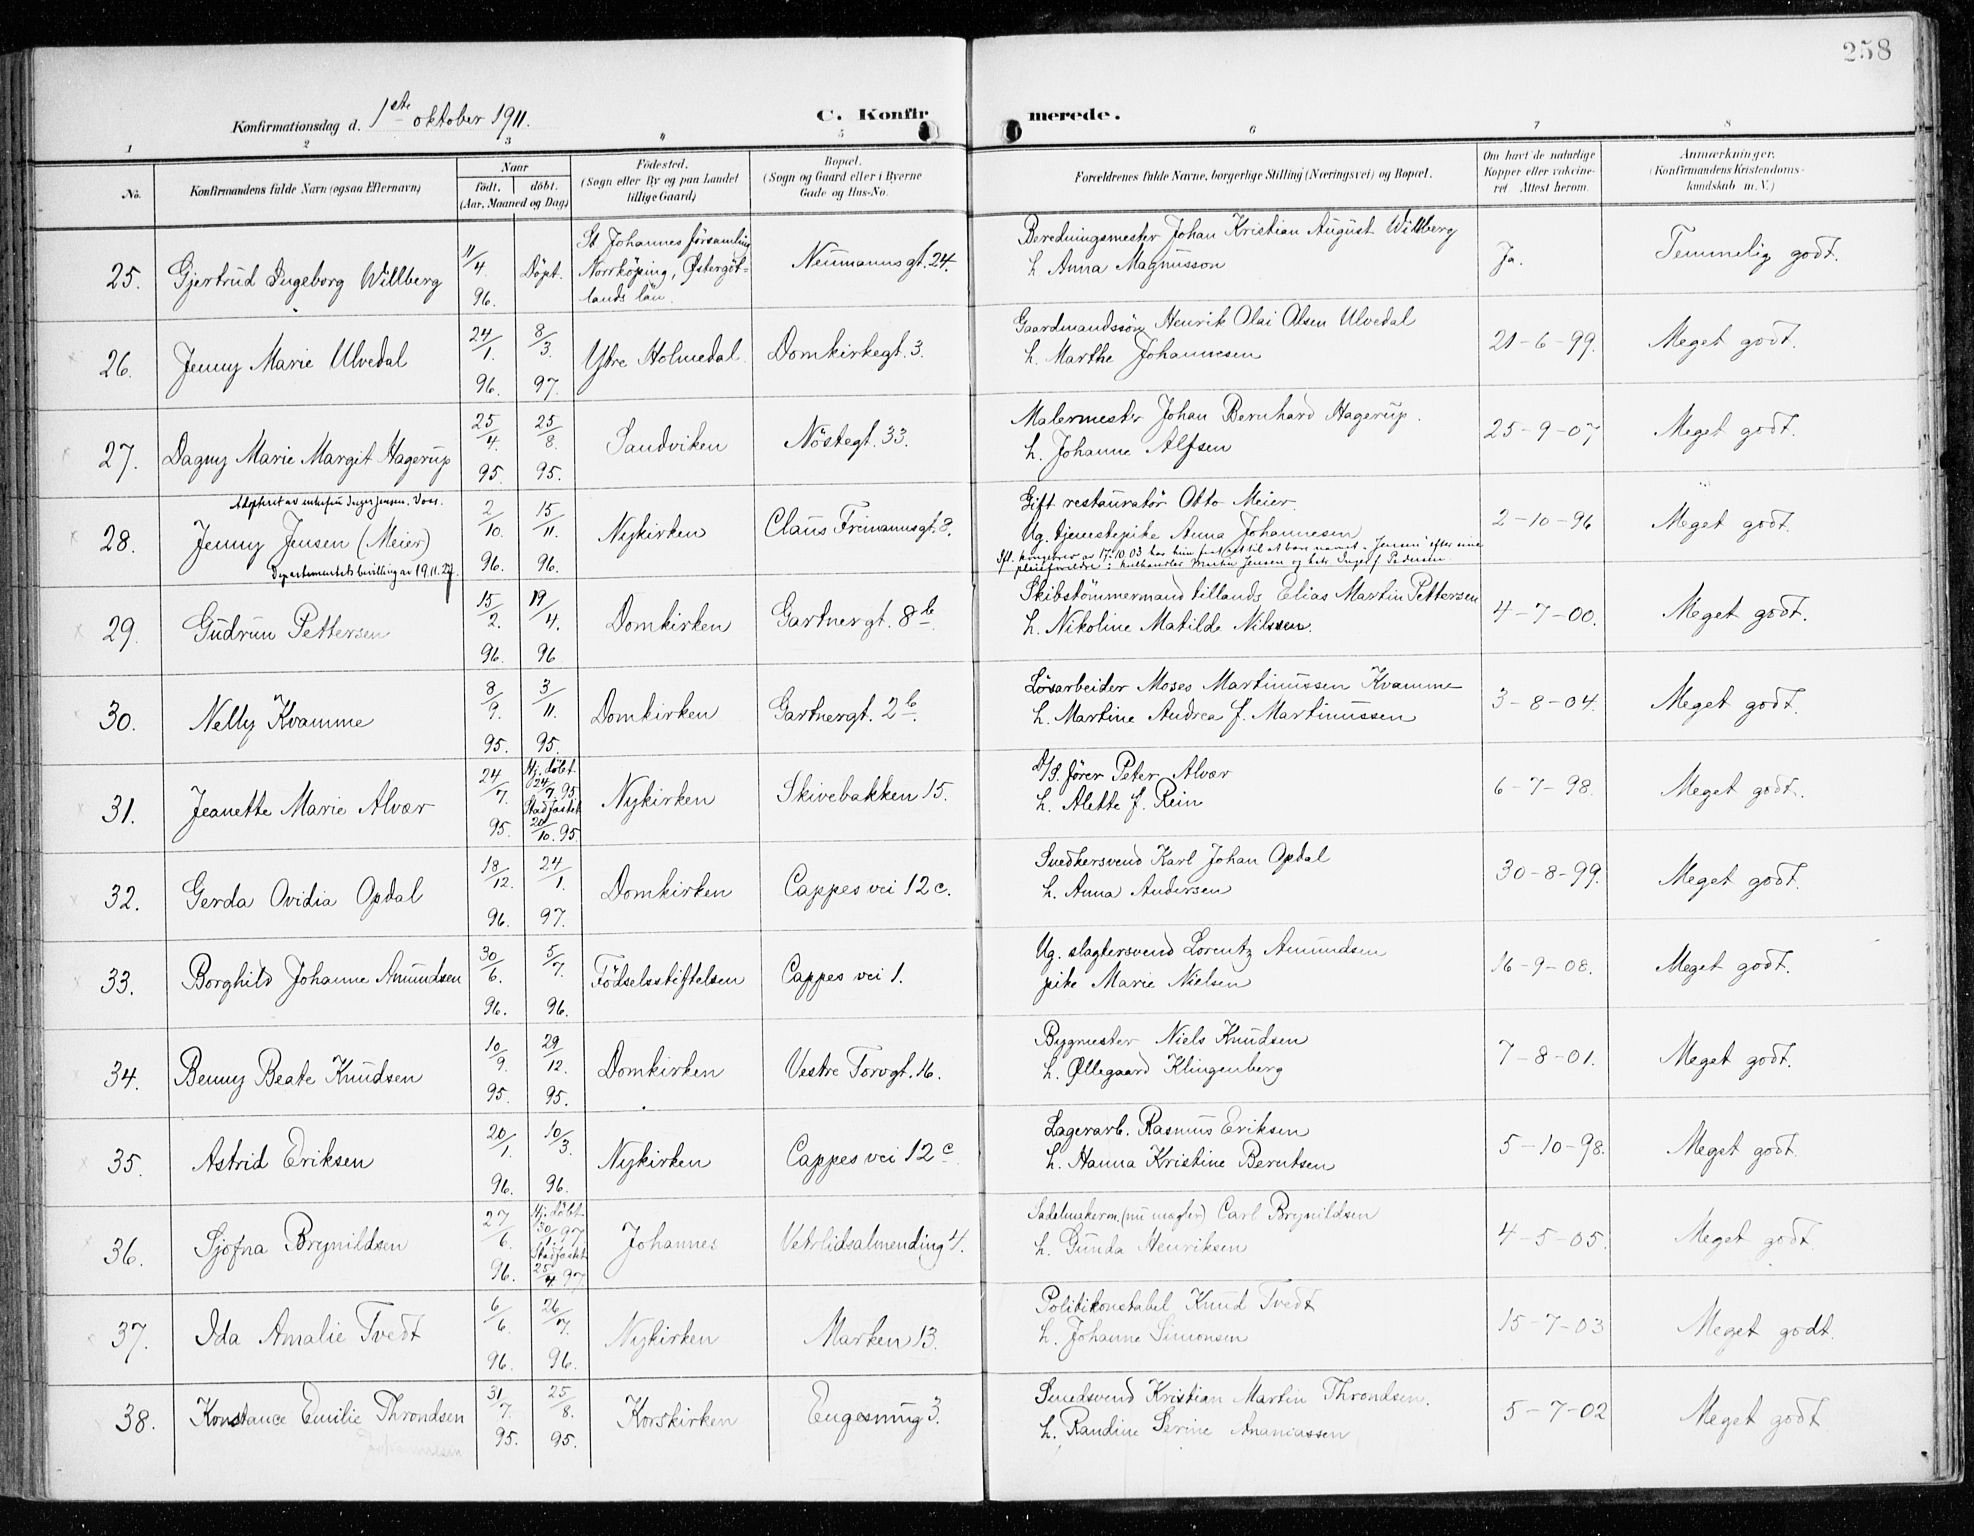 258
Konfirmationsdag d. 1ste oktober 1911. C. Konfirmerede.
1 2 3 4 5 6 7 8
No. Konfirmandens fulde Navn (ogsaa Efternavn) Naar født. døbt. (Aar, Maaned og Dag) Fødested. (Sogn eller By og paa Landet tillige Gaard) Bopæl. (Sogn og Gaard eller i Byerne Gade og Hus-No. Forældrenes fulde Navne, borgerlige Stilling (Næringsvei) og Bopæl. Om havt de naturlige Kopper eller vakcineret Attest herom. Anmærkninger. (Konfirmandens Kristendomskundskab m. V.)
25. Gjertrud Ingeborg Willberg 11/4 96. Döpt. St Johannes församling Norrköping, Östergötlands län. Neumannsgt. 24. Beredningsmester Johan Kristian August Willberg
h. Anna Magnusson Ja. Temmelig godt.
26. Jenny Marie Ulvedal 24/1. 96. 8/3. 97. Ytre Holmedal. Domkirkegt. 3. Gaardmandssøn Henrik Olai Olsen Ulvedal
h. Marthe Johannesen 21-6-99. Meget godt.
27. Dagny Marie Margit Hagerup 25/4. 95. 25/8. 95. Sandviken Nöstegt. 33. Malermester Johan Bernhard Hagerup.
h. Johanne Alfsen 25-9-07 Meget godt.
Adopteret av enkefru Inger Jensen. Voss.
28. Jenny Jensen (Meier) 2/10. 96. 15/11. 96. Nykirken Claus Frimannsgt. 8. Gift restauratör Otto Meier.
Ug. tjenestepike Anna Johannesen 2-10-96 Meget godt.
Departementets bevilling av 19.11.27.
av 17.10.03 har hun til at navnet "Jensen" efter sine
pleieforældre: Martin Jensen og h. Inger f. Pedersen
29. Gudrun Pettersen 15/2. 96. 19/4. 96. Domkirken Gartnergt. 8b. Skibstömmermand tillands Elias Martin Pettersen
h. Nikoline Matilde Nilssen. 4-7-00. Meget godt.
30. Nelly Kvamme 8/9. 95. 3/11. 95. Domkirken Gartnergt. 2b. Løsarbeider Moses Martinussen Kvamme
h. Martine Andrea f. Martinussen 3-8-04. Meget godt.
31. Jeanette Marie Alvær 24/7. 95. Hj. døbt 24/7. 95 Stadfæstet 20/10. 95. Nykirken Skivebakken 15. D/S. förer Peter Alvær
h. Alette f. Rein 6-7-98. Meget godt.
32. Gerda Ovidia Opdal 18/12. 96. 24/1. 97. Domkirken Cappes vei 12c. Snedkersvend Karl Johan Opdal
h. Anna Andersen 30-8-99. Meget godt.
33. Borghild Johanne Amundsen 30/6. 96. 5/7. 96. Födselsstiftelsen Cappes vei 1. Ug. slagtersvend Lorentz Amundsen
pike Marie Nielsen 16-9-08. Meget godt.
34. Benny Beate Knudsen 10/9. 95. 29/12. 95. Domkirken Vestre Torvgt. 16. Bygmester Niels Knudsen
h. Øllegaard Klingenberg 7-8-01. Meget godt.
35. Astrid Eriksen 20/1. 96. 10/3. 96. Nykirken Cappes vei 12c. Lagerarb. Rasmus Eriksen
h. Hanna Kristine Berntsen 5-10-98. Meget godt.
36. Sjofna Brynildsen 27/6. 96. Hj. døbt 30/1. 97 Stadfæstet 25/4 97. Johannes Vetrlidsalmending 4. Sadelmakerm. (nu mægler) Carl Brynildsen
h. Gunda Henriksen 4-5-05. Meget godt
37. Ida Amalie Tvedt 6/6. 96. 26/7. 96. Nykirken Marken 13. Politikonstabel Knud Tvedt
h. Johanne Simonsen 15-7-03 Meget godt.
38. Konstance Emilie Throndsen 31/7. 95. 25/8. 95. Korskirken Engesmug 3. Smedsvend Kristian Martin Throndsen.
h. Randine Serine Ananiassen 5-7-02 Meget godt
Johannesen